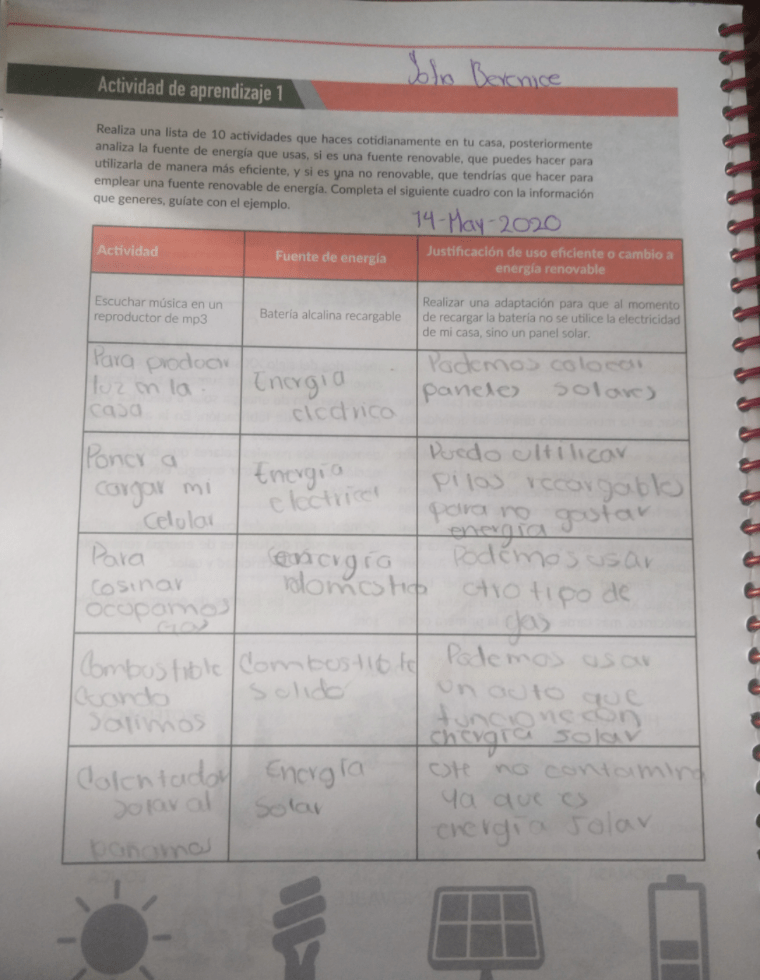 Actividad de aprendizaje 1
Berenice
Realiza una lista de 10 actividades que haces cotidianamente en tu casa, posteriormente
analiza la fuente de energía que usas, si es una fuente renovable, que puedes hacer para
utilizarla de manera más eficiente, y si es una no renovable, que tendrías que hacer para
emplear una fuente renovable de energía. Completa el siguiente cuadro con la información
que generes, guíate con el ejemplo.
14-May-2020
Actividad
Fuente de energía
Justificación de uso eficiente o cambio a
energía renovable
Escuchar música en un
reproductor de mp3
Batería alcalina recargable
Realizar una adaptación para que al momento
de recargar la batería no se utilice la electricidad
de mi casa, sino un panel solar.
Para producir
luz en la
casa
Energía
electrica
Podemos colocar
paneles solares
Poner a
cargar mi
celular
Energía
electrica
Puedo ultilicar
pilas recargables
para no gastar
energía
Para
cosinar
ocupamos
Gas
energía
Podemos usar
otro tipo de
gas
Combustible
Cuando
salimos
Combustible
solido
Podemos usar
un auto que
funcione con
energía solar
Calentador
solar al
bañarnos
Energía
solar
este no contamina
ya que es
energía solar